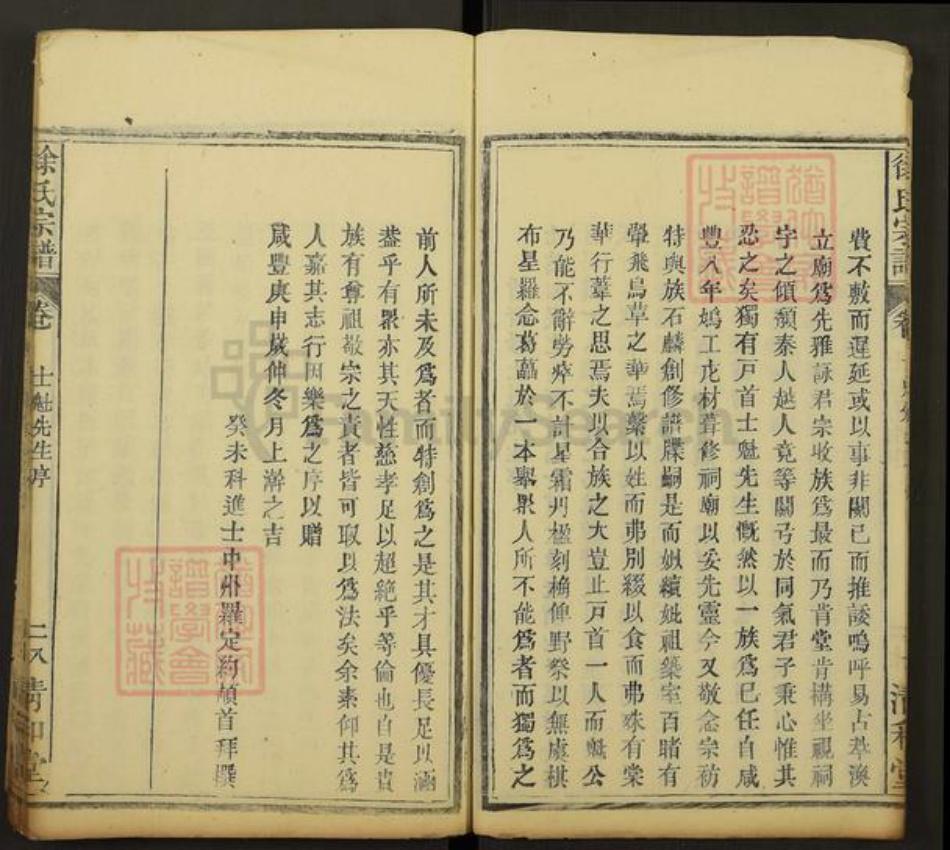 費不敷而遲延或以事非關已而推諉嗚呼易占萃渙
立廟爲先雅詠君宗收族爲最而乃肯堂肯構坐視祠
宇之傾頽秦人越人竟等關弓於同氣君子秉心惟其
忍之矣獨有戸首士魁先生慨然以一族爲已任自咸
豐八年鳩工庀材葺修祠廟以妥先靈今又敬念宗祊
特與族石麟創修譜牒嗣是而嫩續妣祖築室百堵有
翬飛鳥革之華焉繫以姓而弗別綴以食而弗殊有棠
華行葦之思焉夫以合族之大豈止戸首一人而魁公
乃能不辭勞瘁不計星霜丹楹刻桷俾野祭以無虞棋
布星羅念葛藟於一本舉衆人所不能爲者而獨爲之
前人所未及爲者而特創爲之是其才具優長足以涵
葢乎有衆亦其天性慈孝足以超絶乎等倫也自是責
族有尊祖敬宗之責者皆可取以爲法矣余素仰其爲
人嘉其志行因樂爲之序以贈
咸豐庚申歲仲冬月上澣之吉
癸未科進士中州羅定約頓首拜撰
徐氏宗譜
卷
士魁先生序
二八
清和堂